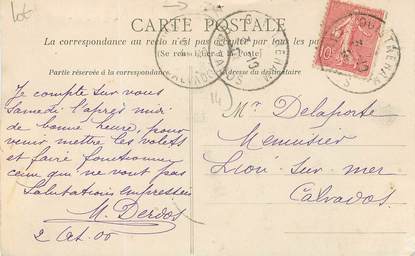 lot
CARTE POSTALE
La correspondance au recto n'est pas acceptée par tous les pays étrangers
(Se renseigner à la Poste)
Partie réservée à la correspondance
Adresse du destinataire
OUISTREHAM
CALVADOS
10
14
Je compte sur vous
Samedi l'après midi
de bonne heure, pour
venir mettre les volets
et faire fonctionner
ceux qui ne vont pas
Salutations empressées
M. Derdos
2 Oct. 00
Mr Delaporte
Menuisier
Lion sur mer
Calvados